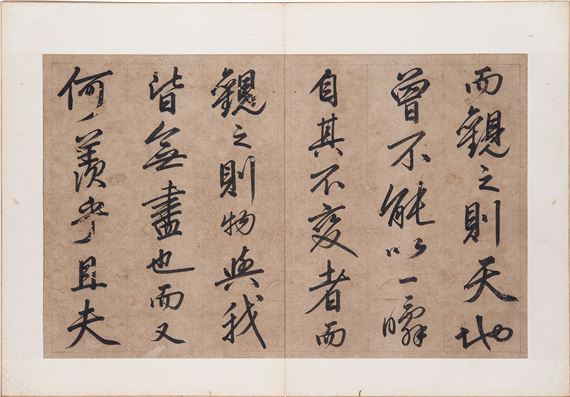 而觀之則天地
曾不能以一瞬
自其不變者而
觀之則物與我
皆無盡也而又
何羨乎且夫